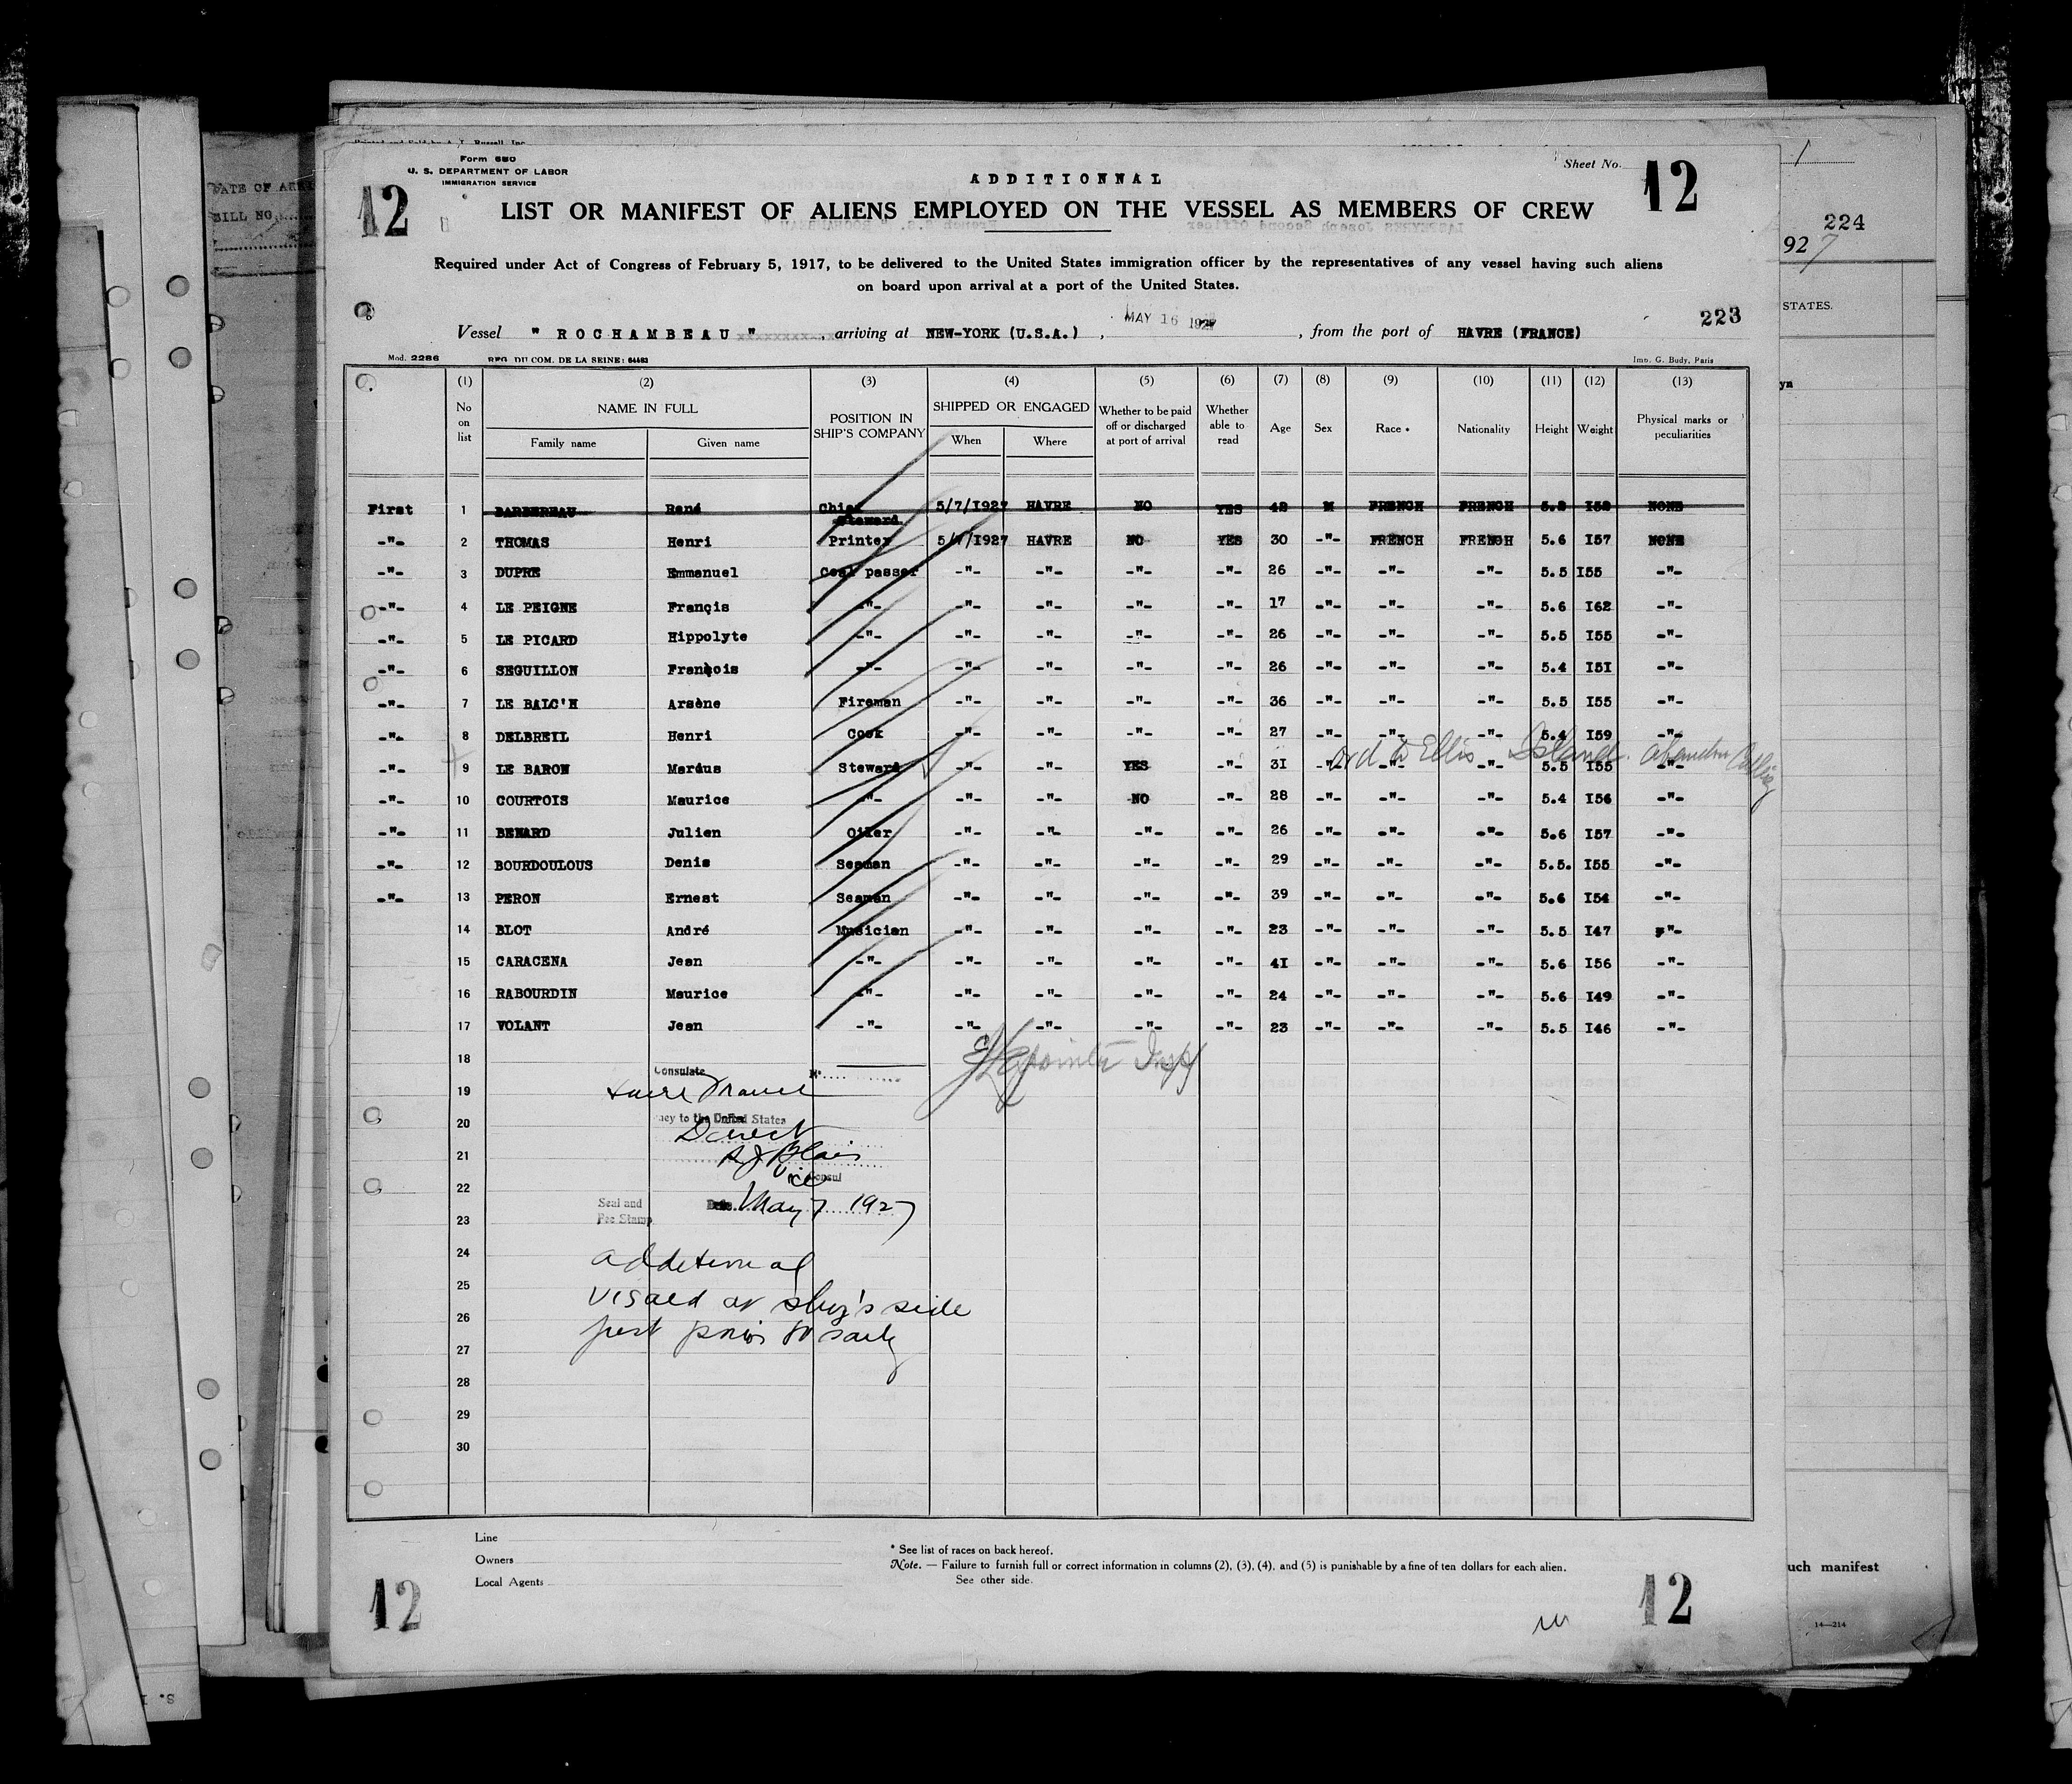 Form 680
U. S. DEPARTMENT OF LABOR
IMMIGRATION SERVICE
Sheet No.
12
12
ADDITIONNAL
LIST OR MANIFEST OF ALIENS EMPLOYED ON THE VESSEL AS MEMBERS OF CREW
224
927
Required under Act of Congress of February 5, 1917, to be delivered to the United States immigration officer by the representatives of any vessel having such aliens
on board upon arrival at a port of the United States.
STATES.
223
Vessel " ROCHAMBEAU ", arriving at NEW-YORK (U.S.A.), MAY 16 1927, from the port of HAVRE (FRANCE)
Mod. 2286 REG. DU COM. DE LA SEINE: 64483 Imp. G. Budy, Paris
(1) (2) (3) (4) (5) (6) (7) (8) (9) (10) (11) (12) (13)
No on list NAME IN FULL Family name Given name POSITION IN SHIP'S COMPANY SHIPPED OR ENGAGED When Where Whether to be paid off or discharged at port of arrival Whether able to read Age Sex Race * Nationality Height Weight Physical marks or peculiarities
First 1 BARBEREAU René Chief Steward 5/7/1927 HAVRE NO YES 42 M FRENCH FRENCH NONE
-"- 2 THOMAS Henri Printer 5/7/1927 HAVRE NO YES 30 -"- FRENCH FRENCH 5.6 I57 NONE
-"- 3 DUPRE Emmanuel Coal passer -"- -"- -"- -"- 26 -"- -"- -"- 5.5 I55 -"-
-"- 4 LE PEIGNE Françis -"- -"- -"- -"- -"- 17 -"- -"- -"- 5.6 I62 -"-
-"- 5 LE PICARD Hippolyte -"- -"- -"- -"- -"- 26 -"- -"- -"- 5.5 I55 -"-
-"- 6 SEGUILLON François -"- -"- -"- -"- -"- 26 -"- -"- -"- 5.4 I5I -"-
-"- 7 LE BALC'H Arsène Fireman -"- -"- -"- -"- 36 -"- -"- -"- 5.5 I55 -"-
-"- 8 DELBREIL Henri Cook -"- -"- -"- -"- 27 -"- -"- -"- 5.4 I59 -"-
ord to Ellis Island.
-"- 9 LE BARON Marius Steward -"- -"- YES -"- 3I -"- -"- -"- 5.5 I55 -"-
-"- 10 COURTOIS Maurice -"- -"- -"- NO -"- 28 -"- -"- -"- 5.4 I56 -"-
-"- 11 BENARD Julien Oiler -"- -"- -"- -"- 26 -"- -"- -"- 5.6 I57 -"-
-"- 12 BOURDOULOUS Denis Seaman -"- -"- -"- -"- 29 -"- -"- -"- 5.5. I55 -"-
-"- 13 PERON Ernest Seaman -"- -"- -"- -"- 39 -"- -"- -"- 5.6 I54 -"-
14 BLOT André Musician -"- -"- -"- -"- 23 -"- -"- -"- 5.5 I47 -"-
15 CARACENA Jean -"- -"- -"- -"- -"- 4I -"- -"- -"- 5.6 I56 -"-
16 RABOURDIN Maurice -"- -"- -"- -"- -"- 24 -"- -"- -"- 5.6 I49 -"-
17 VOLANT Jean -"- -"- -"- -"- -"- 23 -"- -"- -"- 5.5 I46 -"-
18
Consulate
19 Havre France
20 to the United States
Direct
21
Vice Consul
22
Seal and Date May 7 1927
23 Fee Stamp
24 additional
25 visaed at ship's side
26 just prior to
27
28
29
30
Line
Owners
Local Agents
* See list of races on back hereof.
Note. — Failure to furnish full or correct information in columns (2), (3), (4), and (5) is punishable by a fine of ten dollars for each alien.
See other side.
uch manifest
12
12
14—214